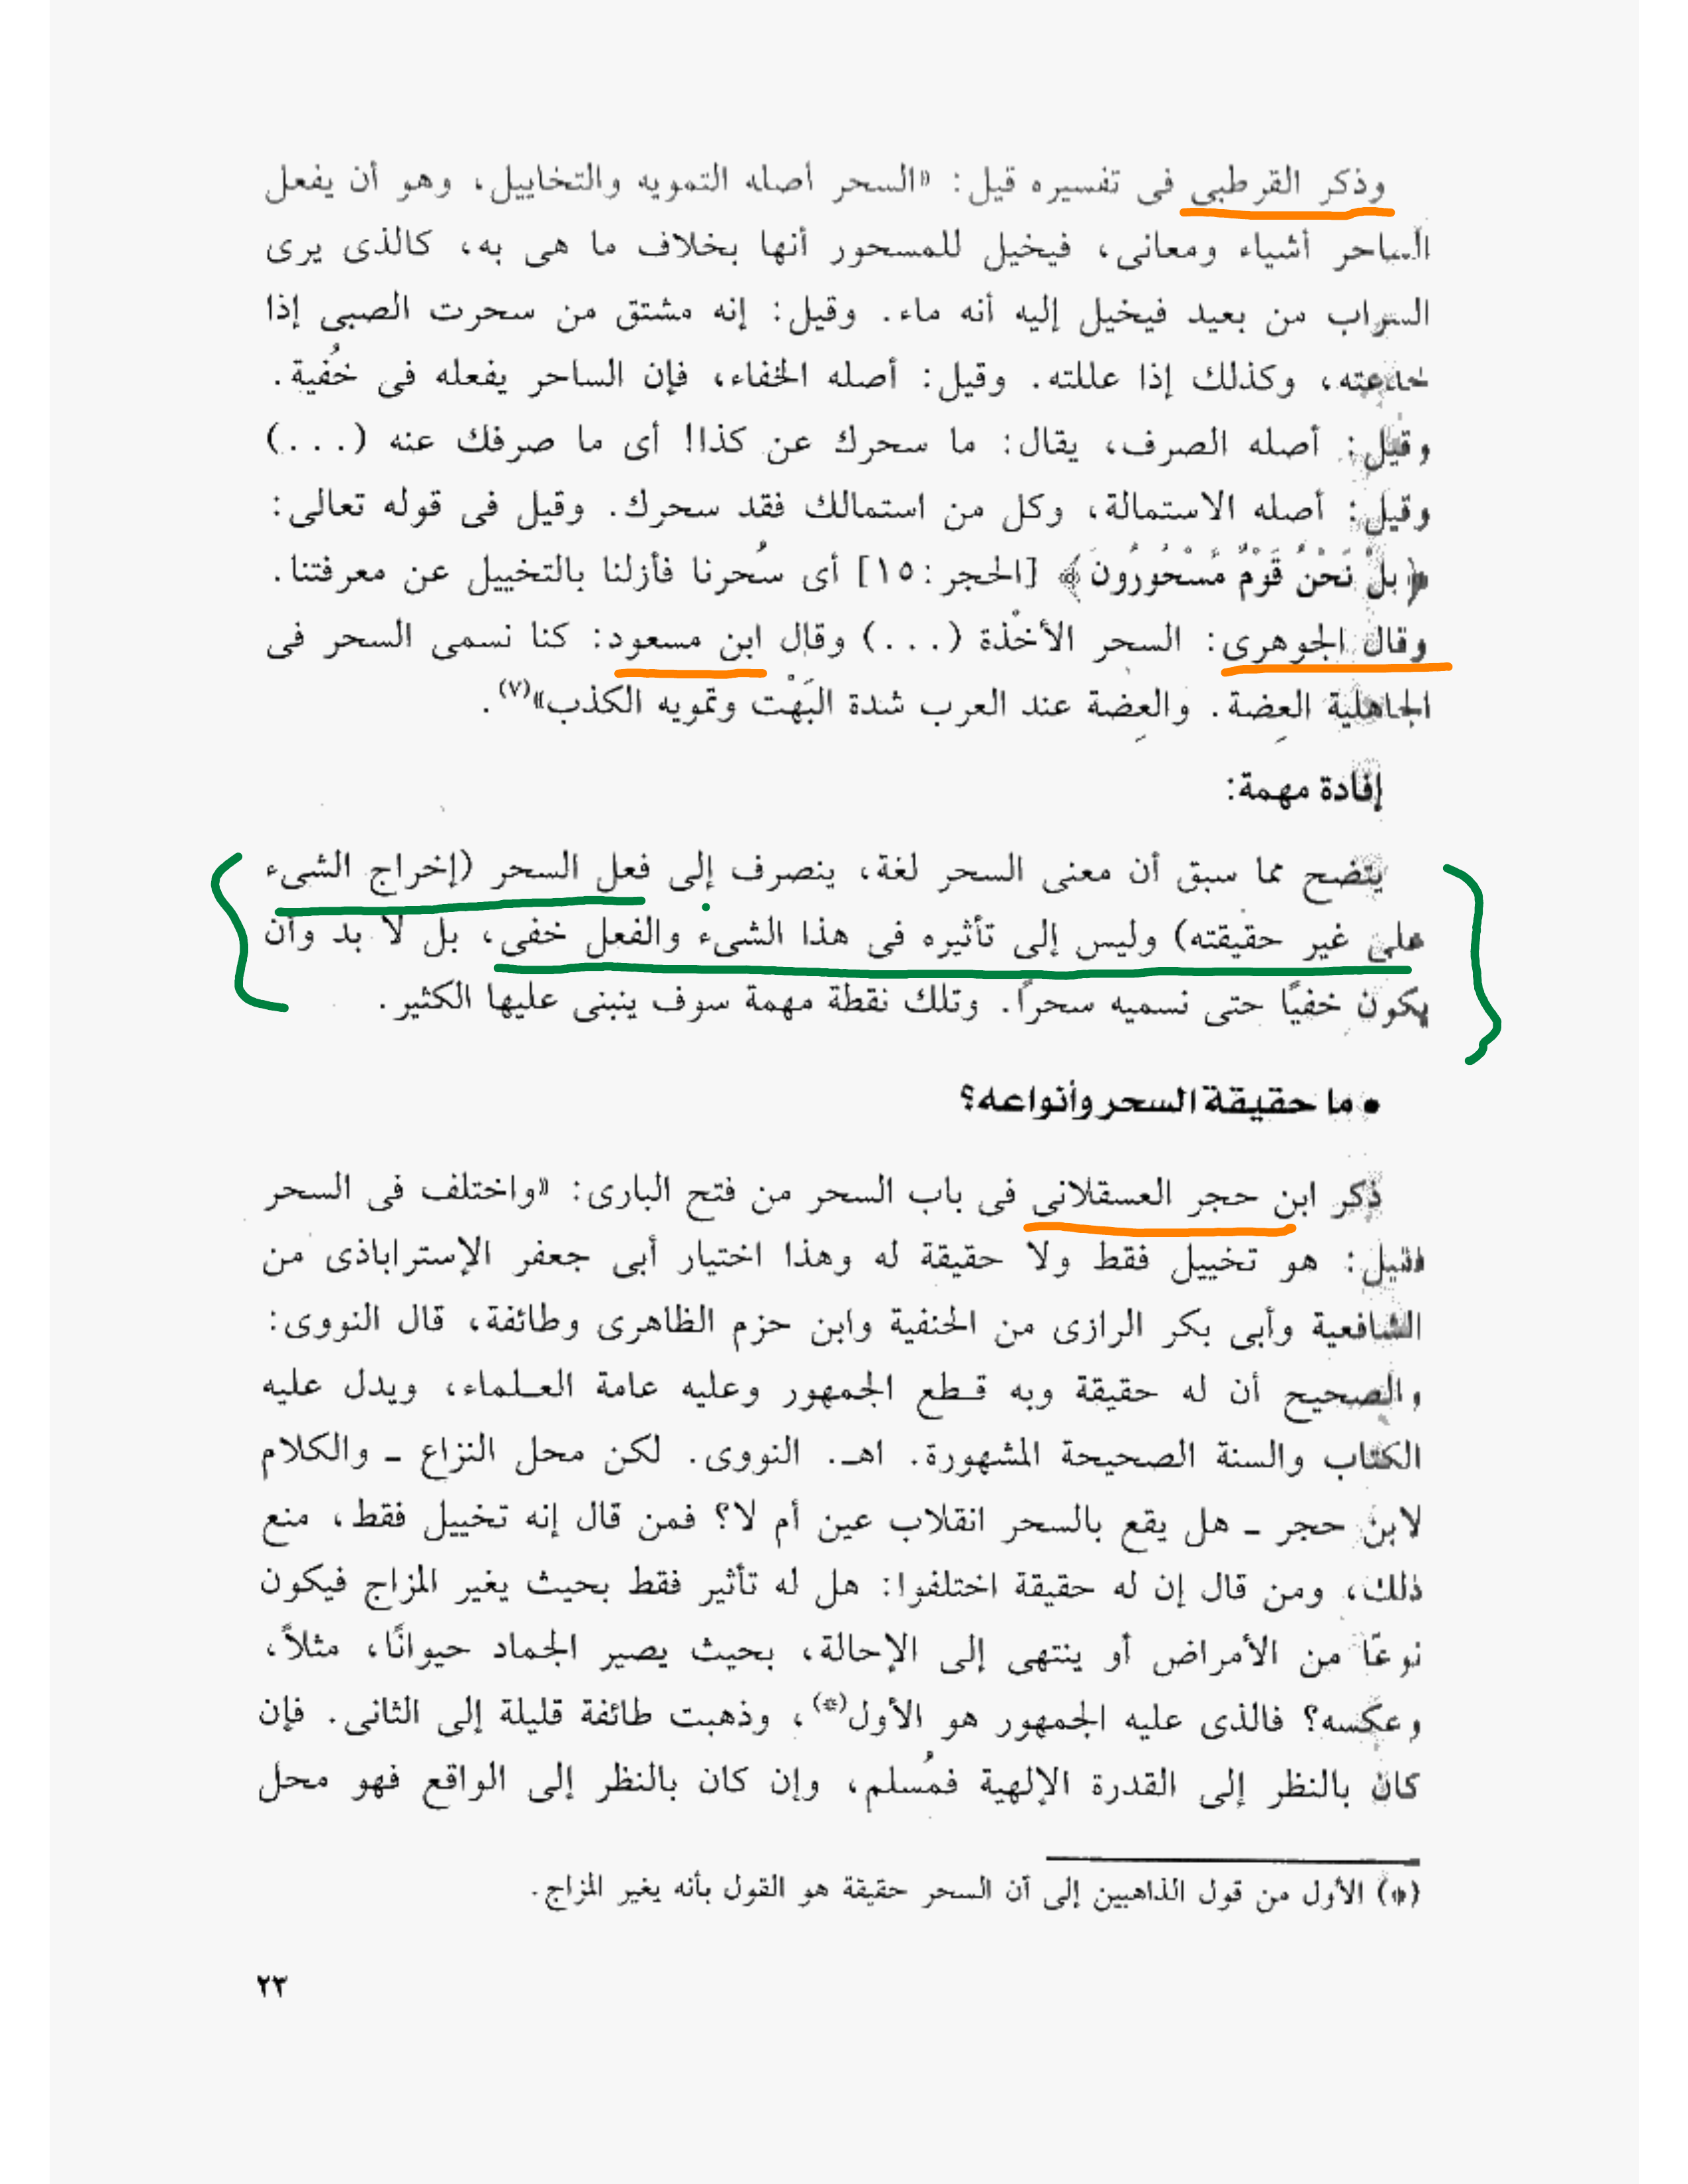 وذكر القرطبى فى تفسيره قيل: «السحر أصله التمويه والتخاييل، وهو أن يفعل
الساحر أشياء ومعانى، فيخيل للمسحور أنها بخلاف ما هى به، كالذى يرى
السراب من بعيد فيخيل إليه أنه ماء. وقيل: إنه مشتق من سحرت الصبى إذا
خادعته، وكذلك إذا عللته. وقيل: أصله الخفاء، فإن الساحر يفعله فى خُفية.
وقيل: أصله الصرف، يقال: ما سحرك عن كذا! أى ما صرفك عنه (...)
وقيل: أصله الاستمالة، وكل من استمالك فقد سحرك. وقيل فى قوله تعالى:
﴿بَلْ نَحْنُ قَوْمٌ مَّسْحُورُونَ﴾ [الحجر:١٥] أى سُحرنا فأزلنا بالتخييل عن معرفتنا.
وقال الجوهرى: السحر الأخْذة (...) وقال ابن مسعود: كنا نسمى السحر فى
الجاهلية العِضة. والعِضة عند العرب شدة البَهْت وتمويه الكذب»(٧).
إفادة مهمة:
يتضح مما سبق أن معنى السحر لغة، ينصرف إلى فعل السحر (إخراج الشىء
على غير حقيقته) وليس إلى تأثيره فى هذا الشىء والفعل خفى، بل لا بد وأن
يكون خفيًا حتى نسميه سحرًا. وتلك نقطة مهمة سوف ينبنى عليها الكثير.
• ما حقيقة السحر وأنواعه؟
ذكر ابن حجر العسقلانى فى باب السحر من فتح البارى: «واختلف فى السحر
فقيل: هو تخييل فقط ولا حقيقة له وهذا اختيار أبى جعفر الإستراباذى من
الشافعية وأبى بكر الرازى من الحنفية وابن حزم الظاهرى وطائفة، قال النووى:
والصحيح أن له حقيقة وبه قطع الجمهور وعليه عامة العلماء، ويدل عليه
الكتاب والسنة الصحيحة المشهورة. اهـ. النووى. لكن محل النزاع ـ والكلام
لابن حجر ـ هل يقع بالسحر انقلاب عين أم لا؟ فمن قال إنه تخييل فقط، منع
ذلك، ومن قال إن له حقيقة اختلفوا: هل له تأثير فقط بحيث يغير المزاج فيكون
نوعًا من الأمراض أو ينتهى إلى الإحالة، بحيث يصير الجماد حيوانًا، مثلاً،
وعكسه؟ فالذى عليه الجمهور هو الأول(*)، وذهبت طائفة قليلة إلى الثانى. فإن
كان بالنظر إلى القدرة الإلهية فمُسلم، وإن كان بالنظر إلى الواقع فهو محل
(*) الأول من قول الذاهبين إلى أن السحر حقيقة هو القول بأنه يغير المزاج.
٢٣